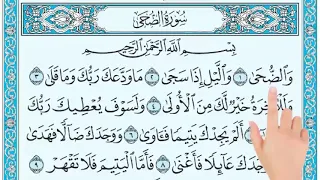 سُورَةُ الضُّحَى
بِسْمِ اللَّهِ الرَّحْمَٰنِ الرَّحِيمِ
وَالضُّحَىٰ ١ وَاللَّيْلِ إِذَا سَجَىٰ ٢ مَا وَدَّعَكَ رَبُّكَ وَمَا قَلَىٰ ٣
خَيْرٌ لَّكَ مِنَ الْأُولَىٰ وَلَسَوْفَ يُعْطِيكَ رَبُّكَ
أَلَمْ يَجِدْكَ يَتِيمًا فَآوَىٰ ٦ وَوَجَدَكَ ضَالًّا فَهَدَىٰ
عَائِلًا فَأَغْنَىٰ ٨ فَأَمَّا الْيَتِيمَ فَلَا تَقْهَرْ ٩